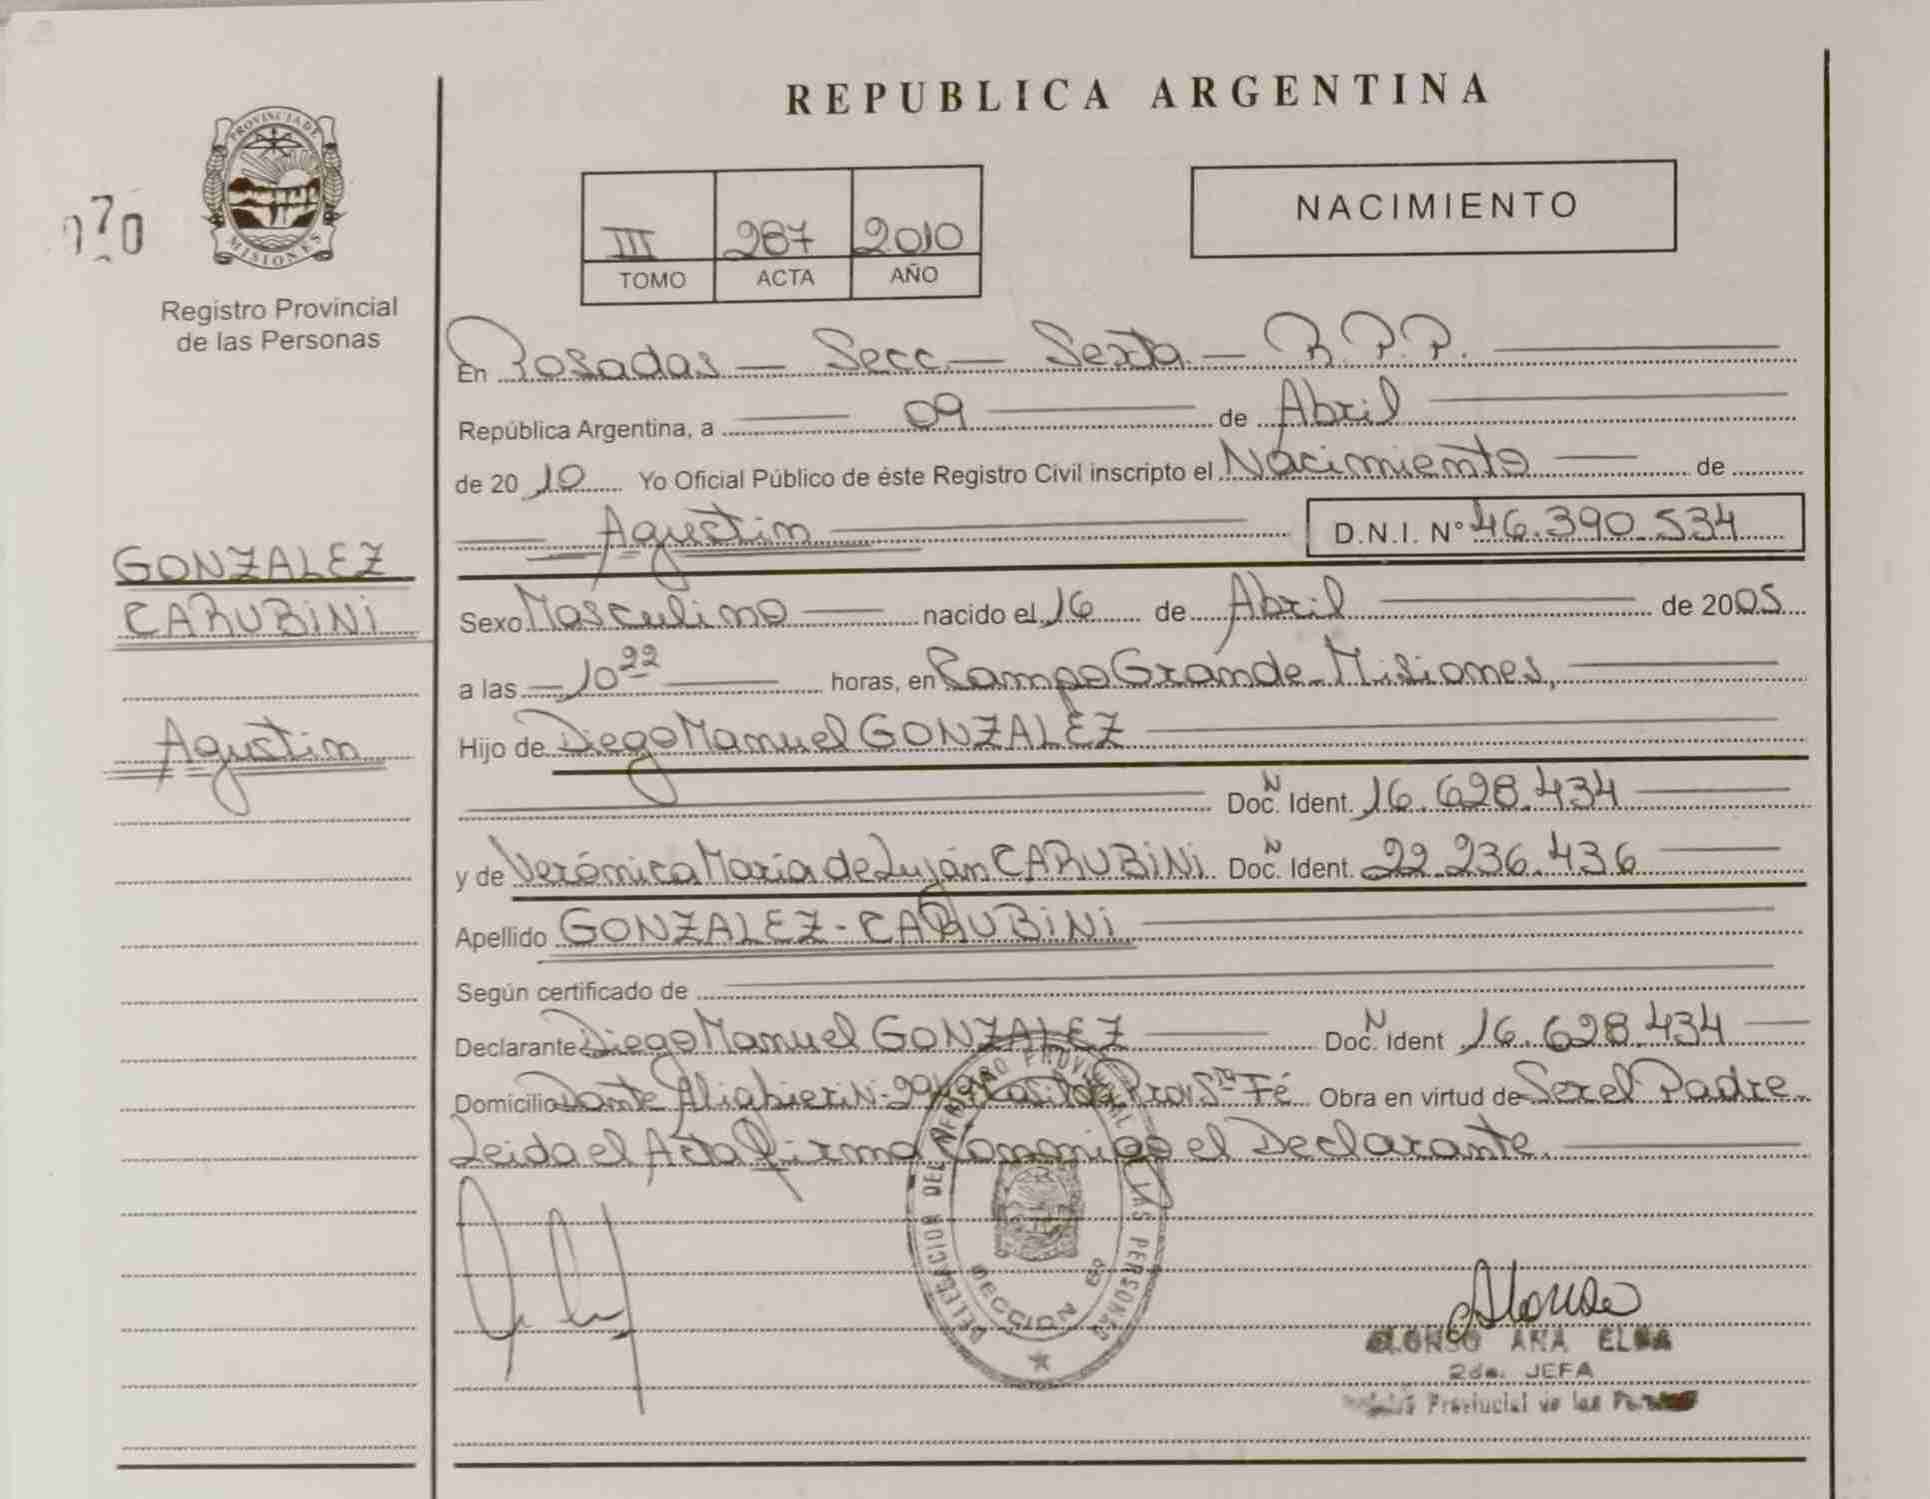 REPUBLICA ARGENTINA
PROVINCIA DE
MISIONES
070
Registro Provincial
de las Personas
III 287 2010
TOMO ACTA AÑO
NACIMIENTO
En Posadas — Secc. — Sexta — R.P.P.
República Argentina, a 09 de Abril
de 2010 Yo Oficial Público de éste Registro Civil inscripto el Nacimiento de
Agustin D.N.I. N° 46.390.534
GONZALEZ
CARUBINI
Agustin
Sexo Masculino nacido el 16 de Abril de 2005
a las 10 22 horas, en Campo Grande - Misiones,
Hijo de Diego Manuel GONZALEZ
Doc. N Ident. 16.628.434
y de Verónica María de Luján CARUBINI Doc. N Ident. 22.236.436
Apellido GONZALEZ - CARUBINI
Según certificado de
Declarante Diego Manuel GONZALEZ Doc. N Ident 16.628.434
Domicilio Dante Alighieri N: Casilda Prov Sta Fé Obra en virtud de Ser el Padre
Leida el Acta firma Conmigo el Declarante.
DELEGACION DEL REGISTRO PROVINCIAL DE LAS PERSONAS
SECCION 6º
Alonso
ALONSO ANA ELBA
2da. JEFA
Provincial de las